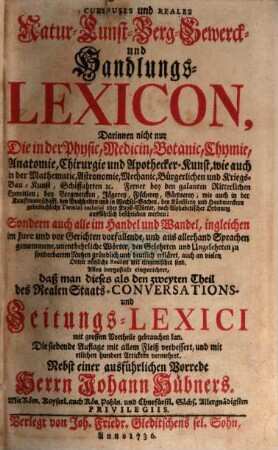 CURIEUSES und REALES
Natur-Kunst-Berg-Gewerck-
und
Handlungs-
LEXICON,
Darinnen nicht nur
Die in der Physic, Medicin, Botanic, Chymie,
Anatomie, Chirurgie und Apothecker-Kunst, wie auch
in der Mathematic, Astronomie, Mechanic, Bürgerlichen und Kriegs-
Bau-Kunst, Schiffahrten ec. Ferner bey den galanten Ritterlichen
Exercitien; bey Bergwercken, Jägerey, Fischerey, Gärtnerey; wie auch in der
Kauffmannschafft, bey Buchhalten und in Wechsel-Sachen, bey Künstlern und Handwerckern
gebräuchliche Termini technici oder Kunst-Wörter, nach Alphabetischer Ordnung
ausführlich beschrieben werden;
Sondern auch alle im Handel und Wandel, ingleichen
im Jure und vor Gerichten vorfallende, und aus allerhand Sprachen
genommene, unentbehrliche Wörter, den Gelehrten und Ungelehrten zu
sonderbarem Nutzen gründlich und deutlich erkläret, auch an vielen
Orten nützliche Realien mit eingemischet sind.
Alles dergestalt eingerichtet,
daß man dieses als den zweyten Theil
des Realen Staats-CONVERSATIONS-
und
Zeitungs-LEXICI
mit grossem Vortheile gebrauchen kan.
Die siebende Auflage mit allem Fleiß verbessert, und mit
etlichen hundert Articteln vermehret.
Nebst einer ausführlichen Vorrede
Herrn Johann Hübners.
Mit Röm. Kayserl. auch Kön. Pohln. und Churfürstl. Sächs. Allergnädigsten
PRIVILEGIIS.
Verlegt von Joh. Friedr. Gleditschens sel. Sohn,
Anno 1736.